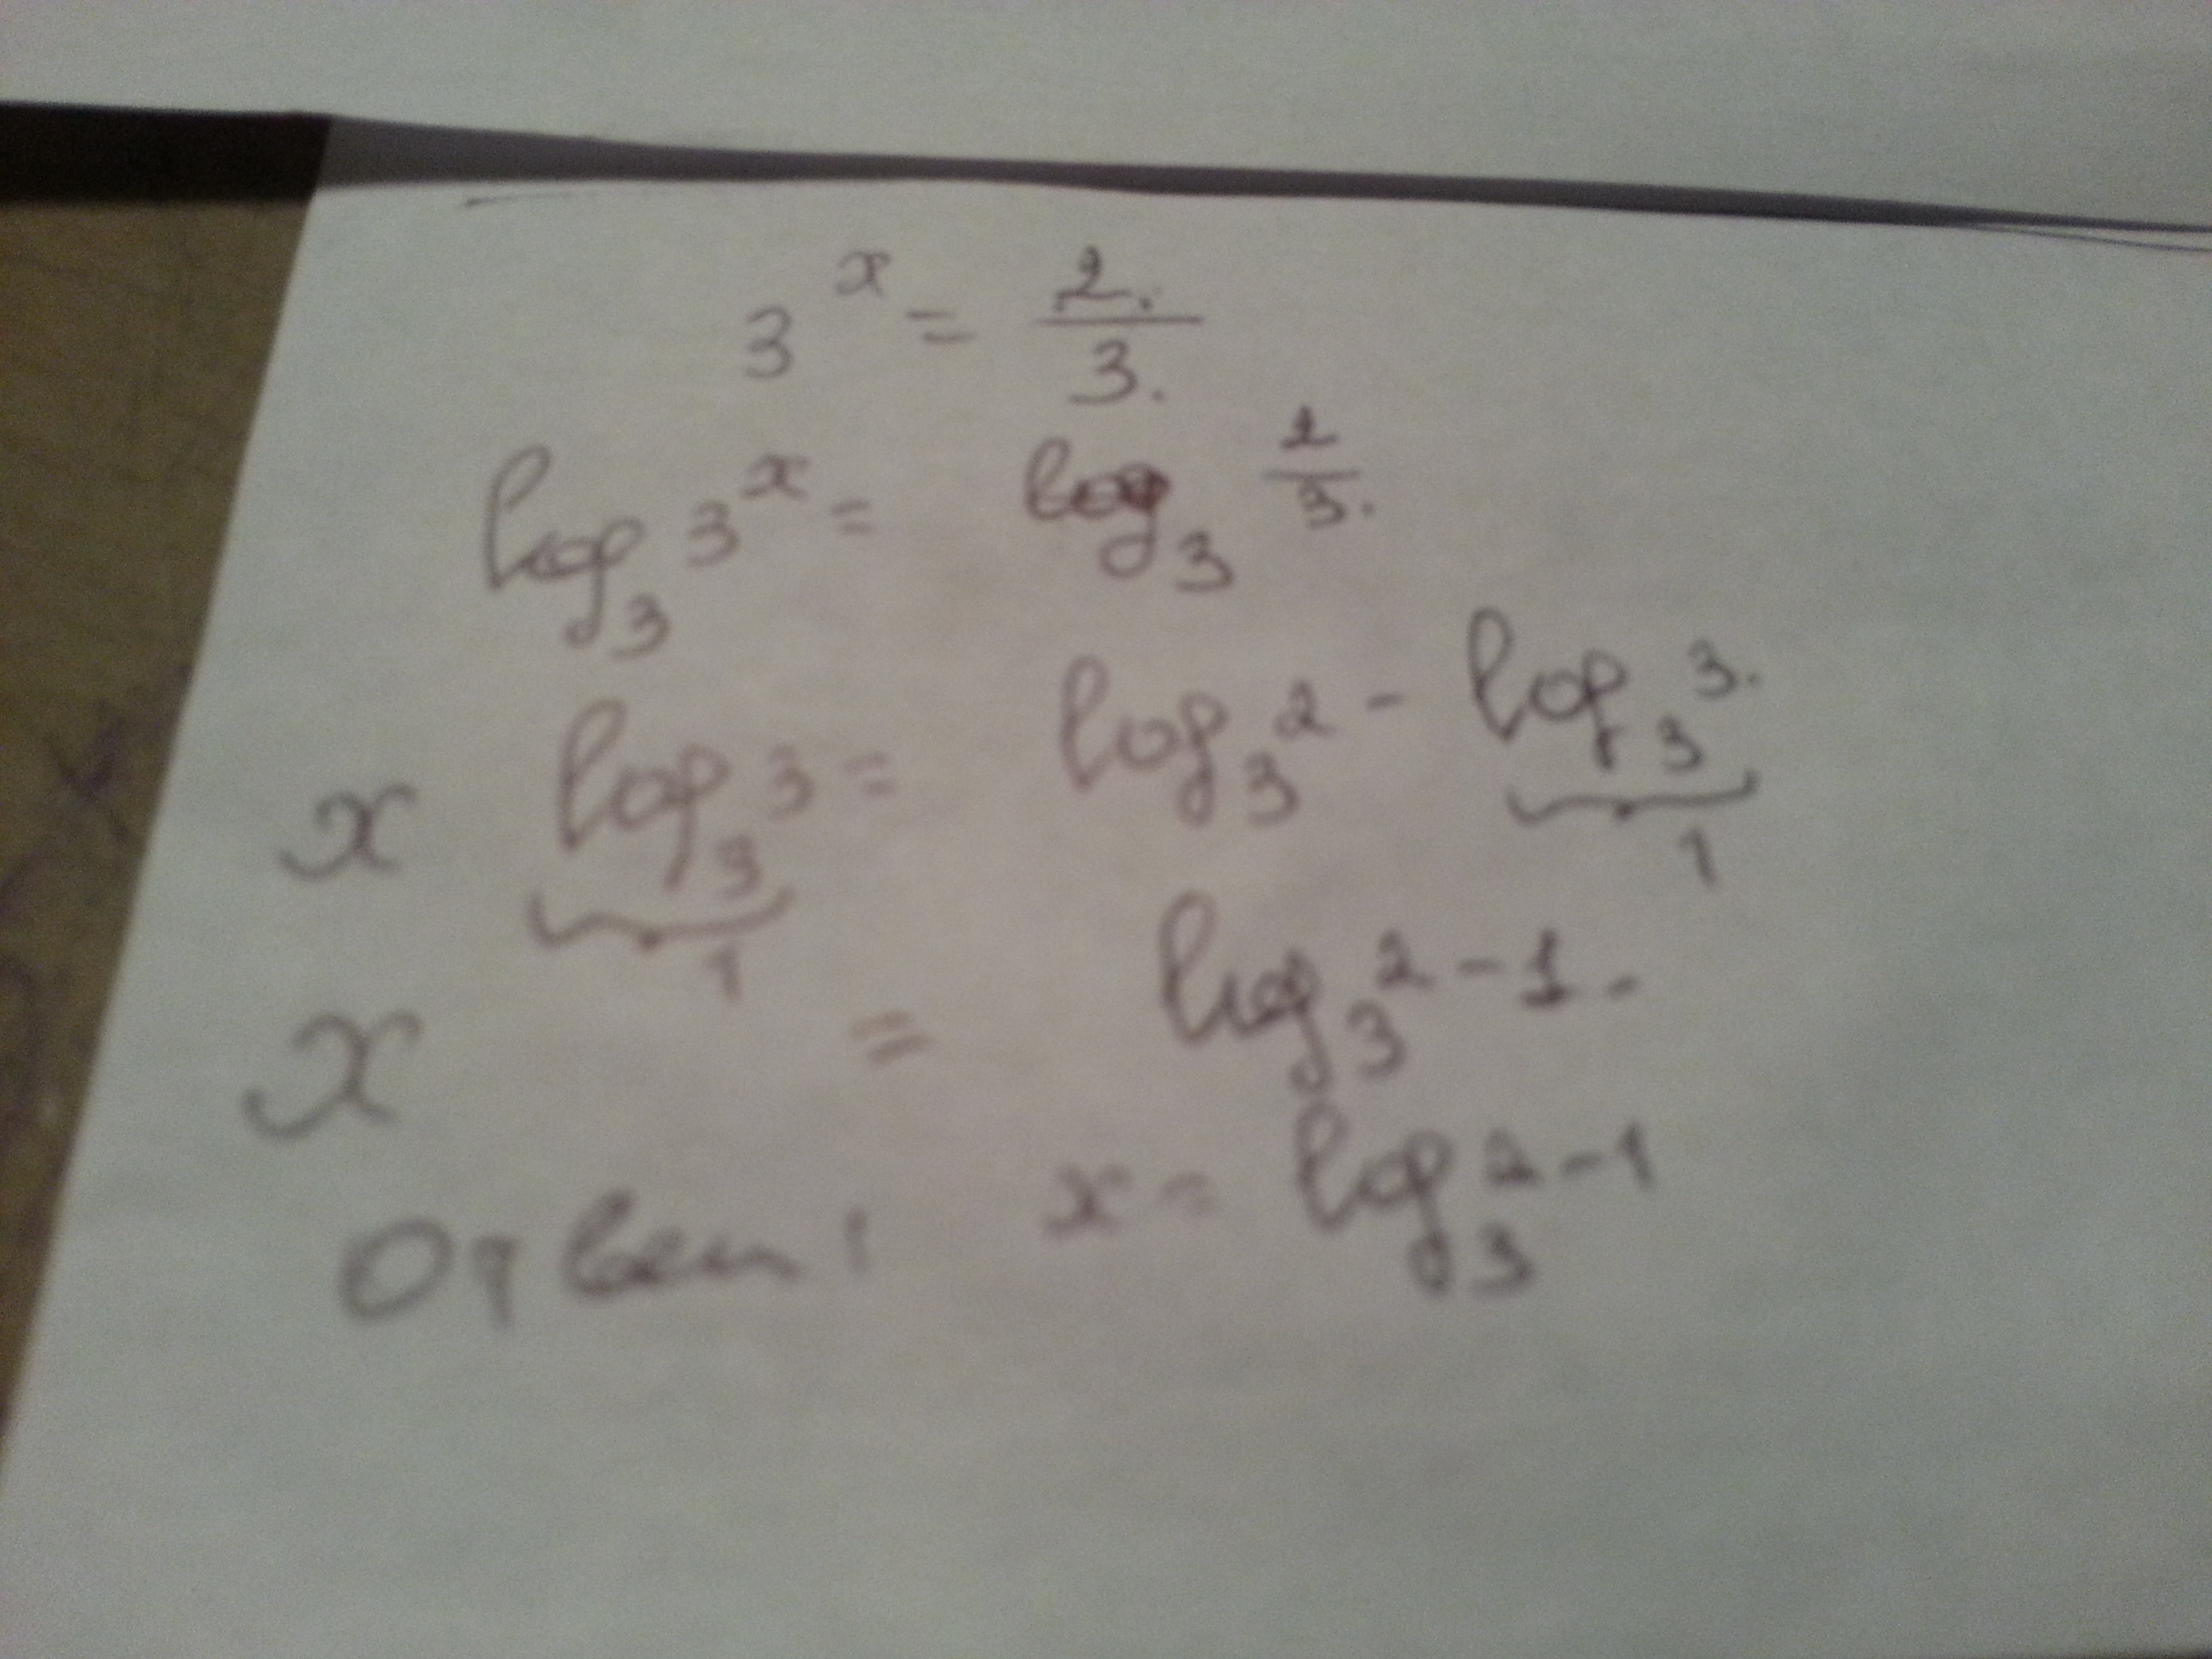 3^x = 2/3.
log_3 3^x = log_3 2/3.
x log_3 3 = log_3 2 - log_3 3.
1 1
x = log_3 2 - 1.
Ответ: x = log_3 2 - 1